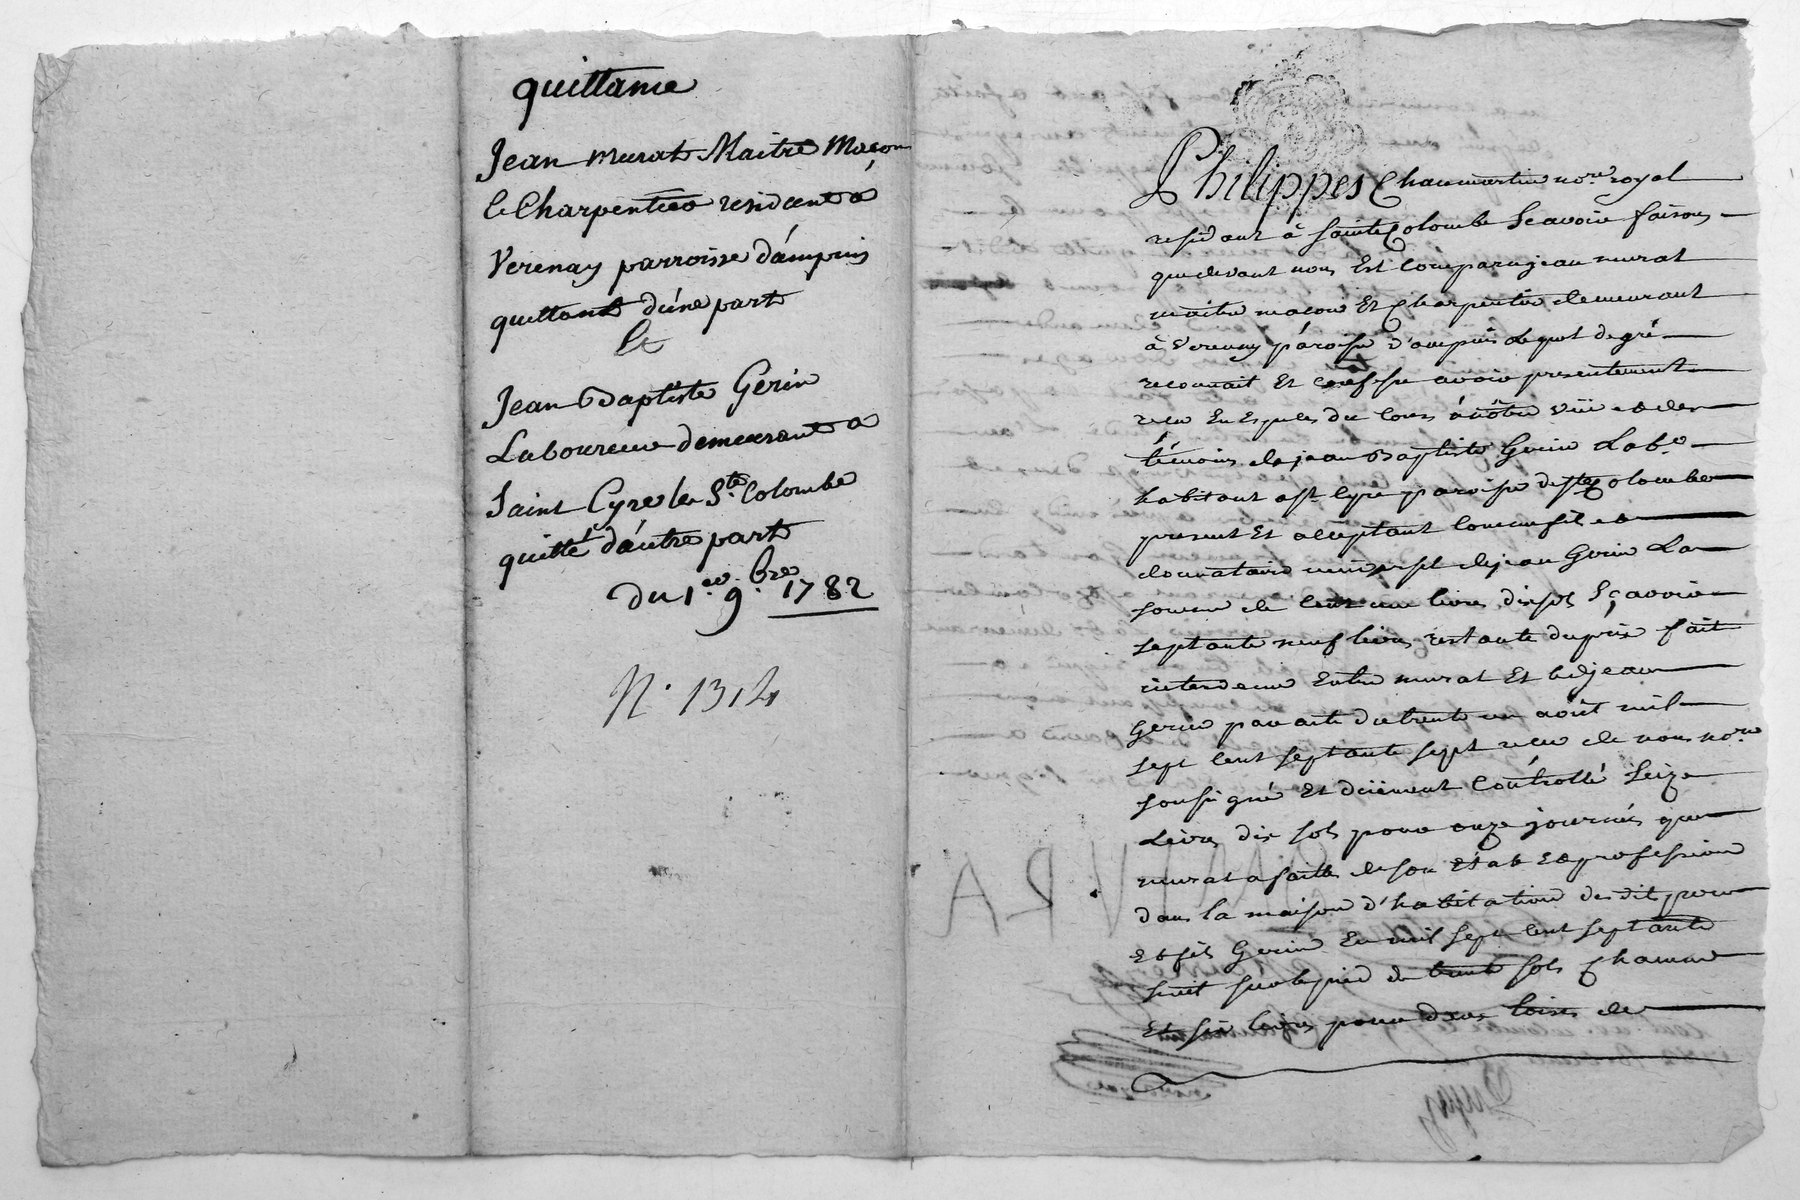 quittance
Jean murat Maitre Maçon
& Charpentier residant a
Verenay parroisse d'ampuis
quittant d'une part
Et
Jean Baptiste Gerin
Laboureur demeurant a
Saint Cyre les Ste Colombe
quitté d'autre part
du 1.er 9.bre 1782
N.º 1314
Philippes Chaumartin no.re royal
residant à Sainte Colombe Scavoir faisons
que devant nous Est Comparu jean murat
maitre macon Et Charpentier demeurant
à Verenay paroisse d'ampuis Lequel de gré
reconnait Et confesse avoir presentement
recu En Especes du Cours à nôtre vüe et des
témoins de jean Baptiste Gerin Lab.r
habitant a St Cyre paroisse de Ste Colombe
present Et acceptant Comme fils et
donnataire universel de jean Gerin La
somme de Cent une livres dix sols Sçavoir
septante neuf livres restante du prix fait
intervenu Entre murat Et led jean
Gerin par acte du trente un août mil
sept Cent septante sept recu de nous no.re
soussigné Et düement Contrôllé Seize
Livres dix sols pour onze journées que
murat a faittes de son Etat et profession
dans la maison d'habitation desdits pere
et fils Gerin En mil sept Cent septante
huit sur le pied de trente sols Chacune
Et six livres pour deux toises de